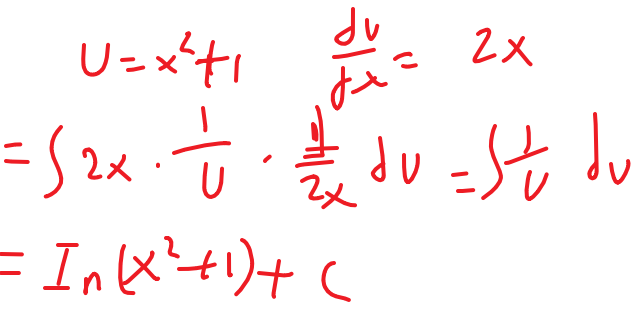 U = x²+1 du/dx = 2x
= ∫ 2x · 1/U · 1/2x du = ∫ 1/U du
= In(x²+1) + C